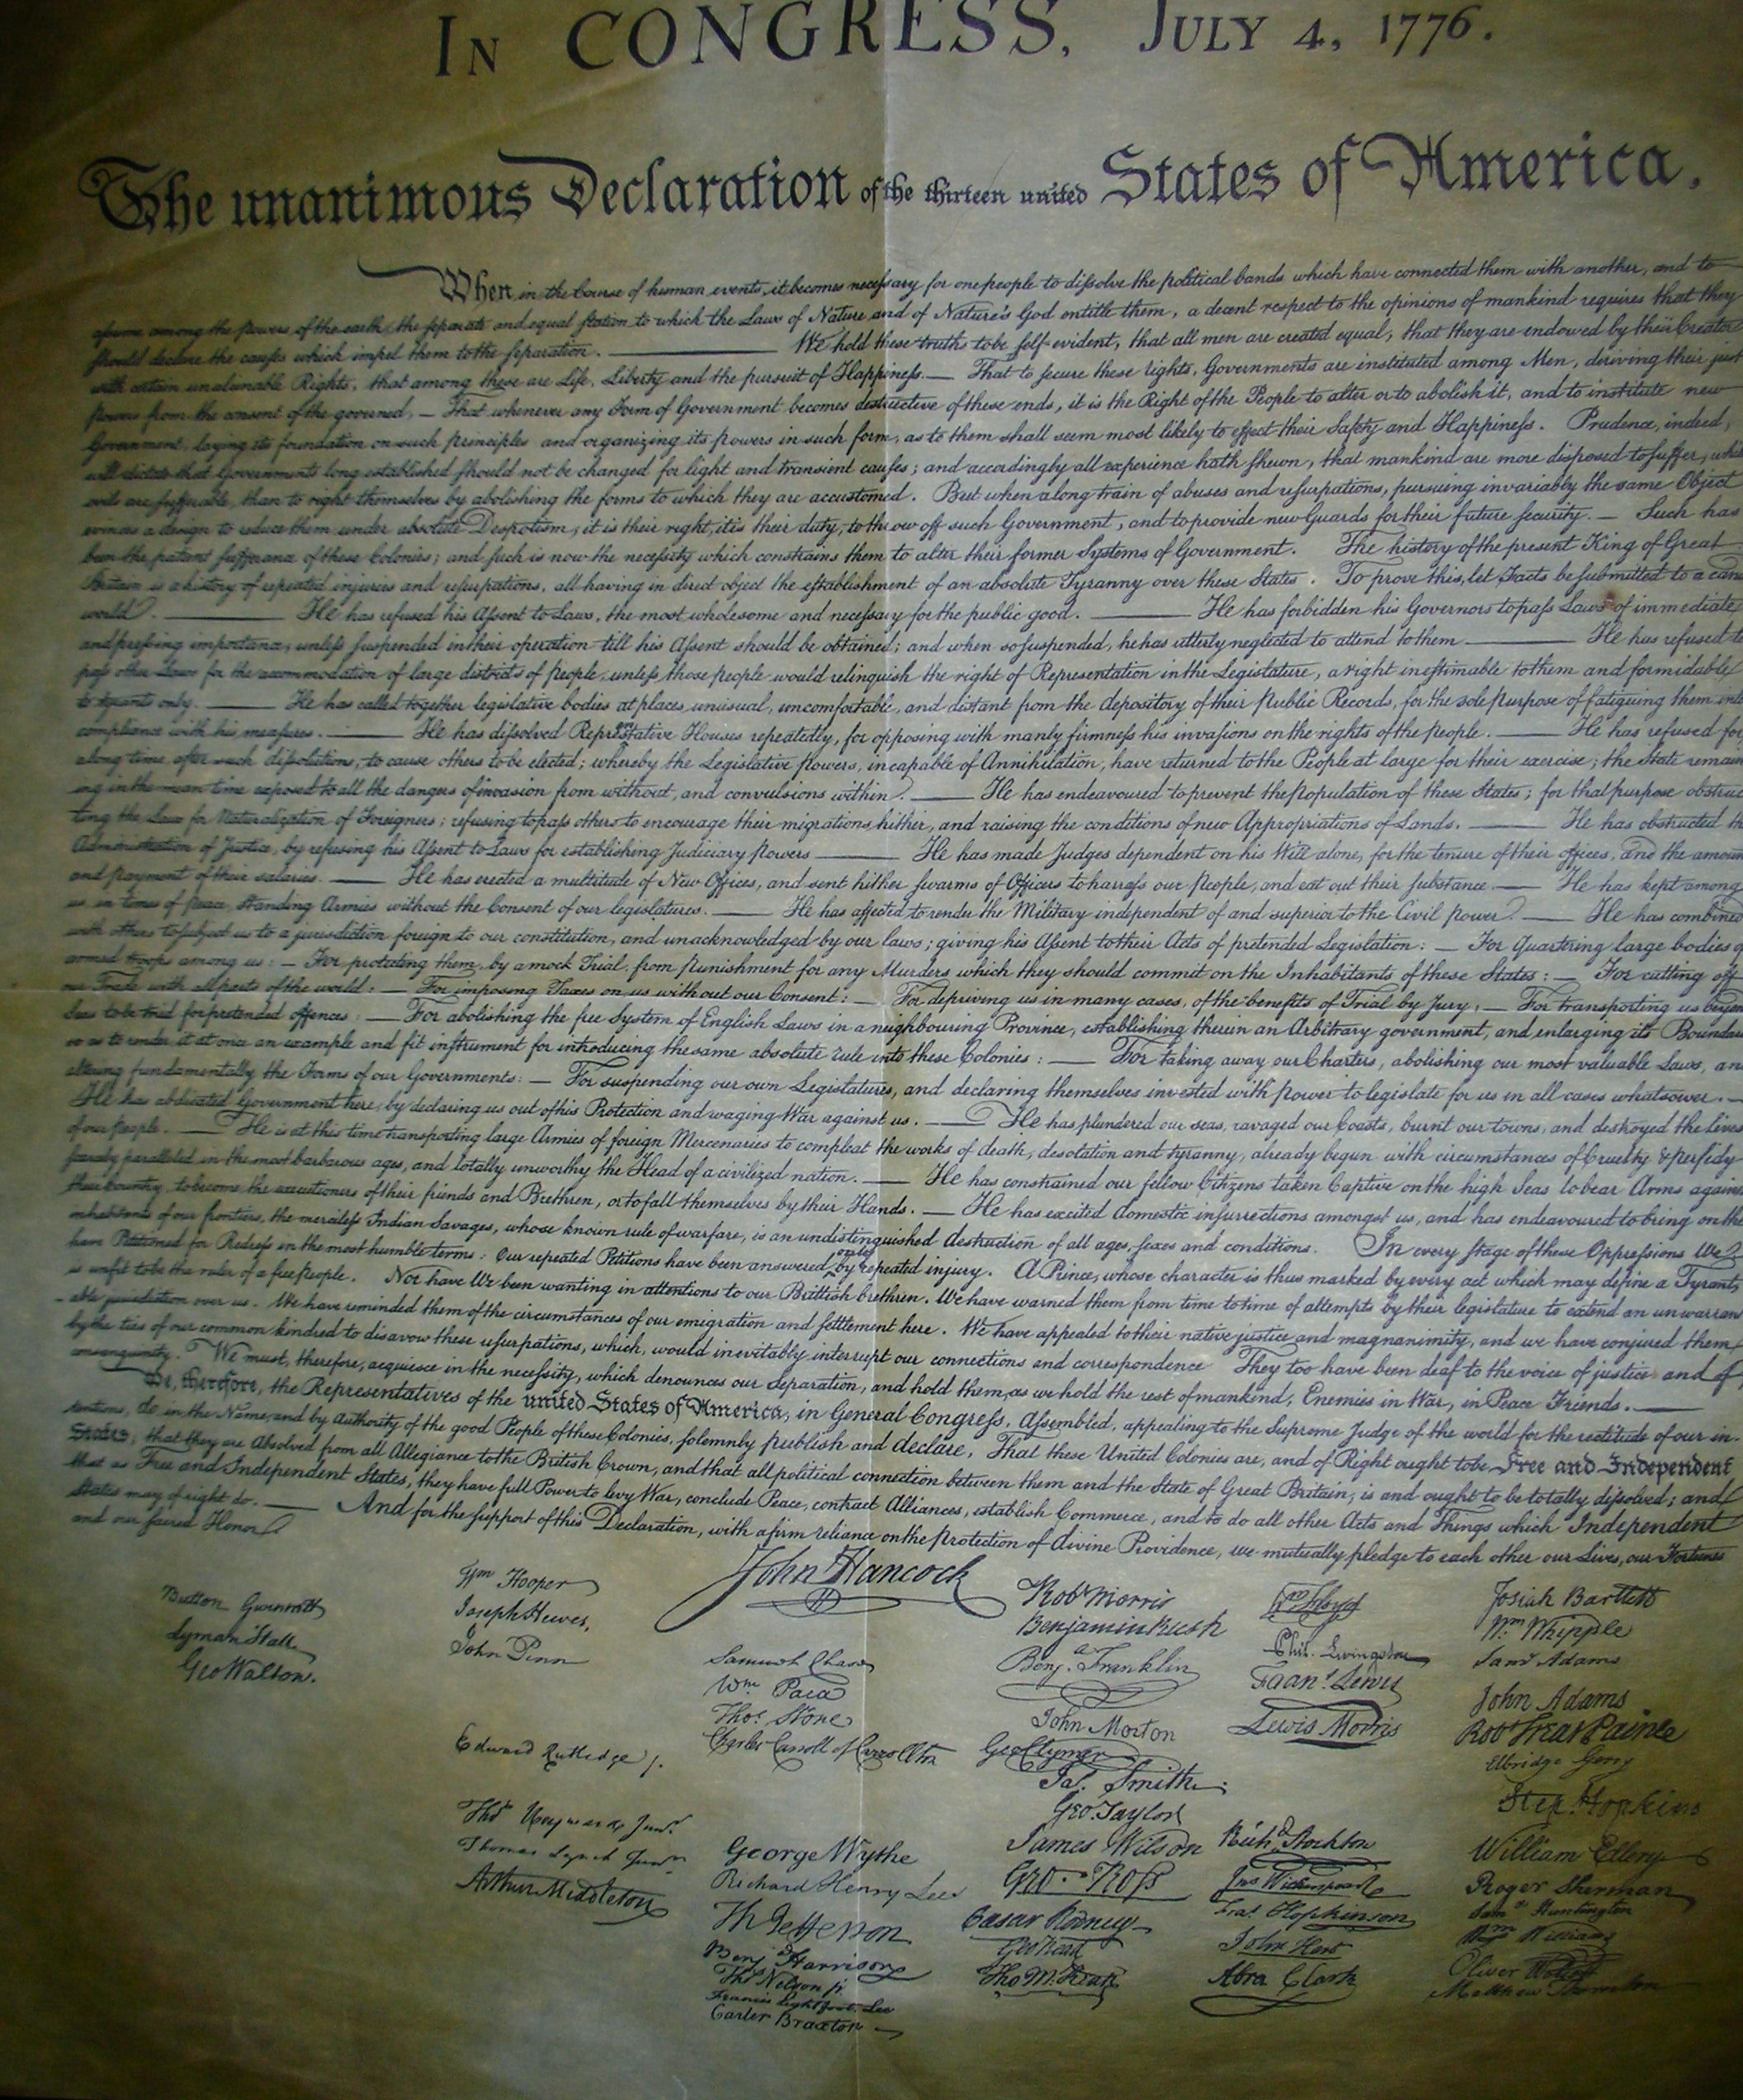 In CONGRESS, July 4, 1776.
The unanimous Declaration of the thirteen united States of America.
When in the Course of human events, it becomes necessary for one people to dissolve the political bands which have connected them with another, and to
assume among the powers of the earth, the separate and equal station to which the Laws of Nature and of Nature's God entitle them, a decent respect to the opinions of mankind requires that they
should declare the causes which impel them to the separation. — We hold these truths to be self-evident, that all men are created equal, that they are endowed by their Creator
with certain unalienable Rights, that among these are Life, Liberty and the pursuit of Happiness. — That to secure these rights, Governments are instituted among Men, deriving their just
powers from the consent of the governed, — That whenever any Form of Government becomes destructive of these ends, it is the Right of the People to alter or to abolish it, and to institute new
Government, laying its foundation on such principles and organizing its powers in such form, as to them shall seem most likely to effect their Safety and Happiness. Prudence, indeed,
will dictate that Governments long established should not be changed for light and transient causes; and accordingly all experience hath shewn, that mankind are more disposed to suffer, while
evils are sufferable, than to right themselves by abolishing the forms to which they are accustomed. But when a long train of abuses and usurpations, pursuing invariably the same Object
evinces a design to reduce them under absolute Despotism, it is their right, it is their duty, to throw off such Government, and to provide new Guards for their future security. — Such has
been the patient sufferance of these Colonies; and such is now the necessity which constrains them to alter their former Systems of Government. The history of the present King of Great
Britain is a history of repeated injuries and usurpations, all having in direct object the establishment of an absolute Tyranny over these States. To prove this, let Facts be submitted to a cand
world. — He has refused his Assent to Laws, the most wholesome and necessary for the public good. — He has forbidden his Governors to pass Laws of immediate
and pressing importance, unless suspended in their operation till his Assent should be obtained; and when so suspended, he has utterly neglected to attend to them — He has refused to
pass other Laws for the accommodation of large districts of people, unless those people would relinquish the right of Representation in the Legislature, a right inestimable to them and formidable
to tyrants only. — He has called together legislative bodies at places unusual, uncomfortable, and distant from the depository of their Public Records, for the sole purpose of fatiguing them into
compliance with his measures. — He has dissolved Representative Houses repeatedly, for opposing with manly firmness his invasions on the rights of the people. — He has refused for
a long time, after such dissolutions, to cause others to be elected; whereby the Legislative powers, incapable of Annihilation, have returned to the People at large for their exercise; the State remain
ing in the mean time exposed to all the dangers of invasion from without, and convulsions within. — He has endeavoured to prevent the population of these States; for that purpose obstruc
ting the Laws for Naturalization of Foreigners; refusing to pass others to encourage their migrations hither, and raising the conditions of new Appropriations of Lands. — He has obstructed the
Administration of Justice, by refusing his Assent to Laws for establishing Judiciary powers — He has made Judges dependent on his Will alone, for the tenure of their offices, and the amount
and payment of their salaries. — He has erected a multitude of New Offices, and sent hither swarms of Officers to harrass our people, and eat out their substance. — He has kept among
us, in times of peace, Standing Armies without the Consent of our legislatures. — He has affected to render the Military independent of and superior to the Civil power. — He has combined
with others to subject us to a jurisdiction foreign to our constitution, and unacknowledged by our laws; giving his Assent to their Acts of pretended Legislation: — For Quartering large bodies of
armed troops among us: — For protecting them, by a mock Trial, from punishment for any Murders which they should commit on the Inhabitants of these States: — For cutting off
our Trade with all parts of the world: — For imposing Taxes on us without our Consent: — For depriving us in many cases, of the benefits of Trial by Jury; — For transporting us beyond
Seas to be tried for pretended offences — For abolishing the free System of English Laws in a neighbouring Province, establishing therein an Arbitrary government, and enlarging its Boundar
so as to render it at once an example and fit instrument for introducing the same absolute rule into these Colonies: — For taking away our Charters, abolishing our most valuable Laws, an
altering fundamentally the Forms of our Governments: — For suspending our own Legislatures, and declaring themselves invested with power to legislate for us in all cases whatsoever. —
He has abdicated Government here, by declaring us out of his Protection and waging War against us. — He has plundered our seas, ravaged our Coasts, burnt our towns, and destroyed the Lives
of our people. — He is at this time transporting large Armies of foreign Mercenaries to compleat the works of death, desolation and tyranny, already begun with circumstances of Cruelty & perfidy
scarcely paralleled in the most barbarous ages, and totally unworthy the Head of a civilized nation. — He has constrained our fellow Citizens taken Captive on the high Seas to bear Arms against
their Country, to become the executioners of their friends and Brethren, or to fall themselves by their Hands. — He has excited domestic insurrections amongst us, and has endeavoured to bring on the
inhabitants of our frontiers, the merciless Indian Savages, whose known rule of warfare, is an undistinguished destruction of all ages, sexes and conditions. In every stage of these Oppressions We
have Petitioned for Redress in the most humble terms: Our repeated Petitions have been answered only by repeated injury. A Prince, whose character is thus marked by every act which may define a Tyrant,
is unfit to be the ruler of a free people. Nor have We been wanting in attentions to our Brittish brethren. We have warned them from time to time of attempts by their legislature to extend an unwarran
-able jurisdiction over us. We have reminded them of the circumstances of our emigration and settlement here. We have appealed to their native justice and magnanimity, and we have conjured them
by the ties of our common kindred to disavow these usurpations, which, would inevitably interrupt our connections and correspondence They too have been deaf to the voice of justice and of
consanguinity. We must, therefore, acquiesce in the necessity, which denounces our Separation, and hold them, as we hold the rest of mankind, Enemies in War, in Peace Friends. —
We, therefore, the Representatives of the united States of America, in General Congress, Assembled, appealing to the Supreme Judge of the world for the rectitude of our in-
tentions, do, in the Name, and by Authority of the good People of these Colonies, solemnly publish and declare, That these United Colonies are, and of Right ought to be Free and Independent
States; that they are Absolved from all Allegiance to the British Crown, and that all political connection between them and the State of Great Britain, is and ought to be totally dissolved; and
that as Free and Independent States, they have full Power to levy War, conclude Peace, contract Alliances, establish Commerce, and to do all other Acts and Things which Independent
States may of right do. — And for the support of this Declaration, with a firm reliance on the protection of divine Providence, we mutually pledge to each other our Lives, our Fortunes
and our sacred Honor.
Button Gwinnett
Lyman Hall
Geo Walton.
Wm Hooper
Joseph Hewes,
John Penn
Edward Rutledge /.
Thos Heyward Junr.
Thomas Lynch Junr.
Arthur Middleton
John Hancock
Samuel Chase
Wm. Paca
Thos. Stone
Charles Carroll of Carrollton
George Wythe
Richard Henry Lee
Th Jefferson
Benja Harrison
Thos Nelson jr.
Francis Lightfoot Lee
Carter Braxton
Robt Morris
Benjamin Rush
Benja. Franklin
John Morton
Geo Clymer
Jas. Smith.
Geo. Taylor
James Wilson
Geo. Ross
Caesar Rodney
Geo Read
Tho M:Kean
Wm Floyd
Phil. Livingston
Frans. Lewis
Lewis Morris
Richd. Stockton
Jno Witherspoon
Fras. Hopkinson
John Hart
Abra Clark
Josiah Bartlett
Wm. Whipple
Saml Adams
John Adams
Robt Treat Paine
Elbridge Gerry
Step. Hopkins
William Ellery
Roger Sherman
Saml Huntington
Wm Williams
Oliver Wolcott
Matthew Thornton